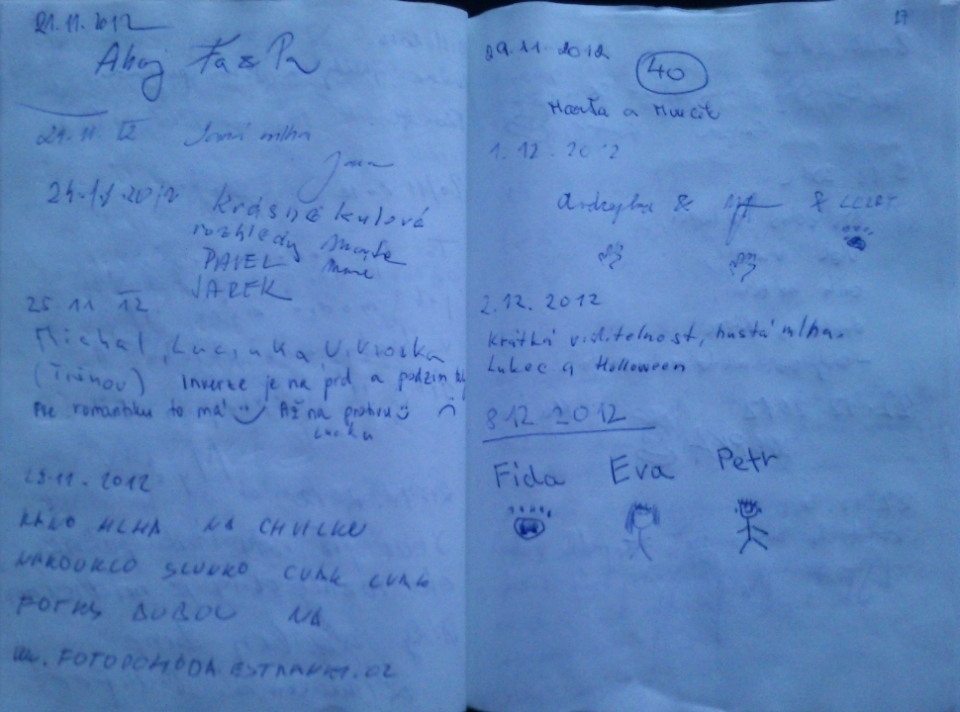 21.11.2012
Ahoj
24.11 12 Jarní mlha
Jana
24.11.2012
Krásné kulová
rozhledy
PAVEL
JAREK
25.11 12
Michal, Lucinka V. Vločka
(Trnov) Inverze je na prd a podzim
Ale romantiku to má Až na protivu
Lucku
28.11.2012
RÁNO MLHA NA CHVILKU
NAKOUKLO SLUNKO CVAK CVAK
FOTKY BUDOU NA
www.FOTOPOHODA.ESTRANKY.CZ
27
29.11.2012
40
Marta a
1.12.2012
& &
2.12.2012
Krátká viditelnost, hustá mlha.
Lukec a Holloween
8.12 2012
Fida Eva Petr